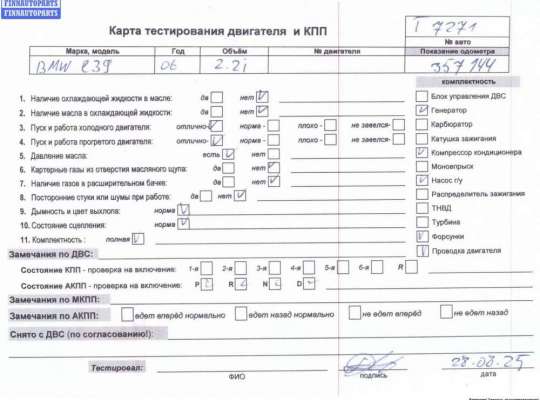 FINNAUTOPARTS
FINNAUTOPARTS
FINNAUTOPARTS
Карта тестирования двигателя и КПП
T 7271
№ авто
Марка, модель Год Объём № двигателя Показание одометра
BMW e39 06 2.2i 357144
комплектность
1. Наличие охлаждающей жидкости в масле: да нет
2. Наличие масла в охлаждающей жидкости: да нет
3. Пуск и работа холодного двигателя: отлично- норма - плохо - не завелся-
4. Пуск и работа прогретого двигателя: отлично- норма - плохо - не завелся-
5. Давление масла: есть нет
6. Картерные газы из отверстия масляного щупа: да нет
7. Наличие газов в расширительном бачке: да нет
8. Посторонние стуки или шумы при работе: да нет
9. Дымность и цвет выхлопа: норма
10. Состояние сцепления: норма
11. Комплектность : полная
Блок управления ДВС
Генератор
Карбюратор
Катушка зажигания
Компрессор кондиционера
Моновпрыск
Насос г/у
Распределитель зажигания
ТНВД
Турбина
Форсунки
Проводка двигателя
Замечания по ДВС:
Состояние КПП - проверка на включение: 1-я 2-я 3-я 4-я 5-я 6-я R
Состояние АКПП - проверка на включение: P R N D
Замечания по МКПП:
Замечания по АКПП: едет вперёд нормально едет назад нормально не едет вперёд не едет назад
Снято с ДВС (по согласованию!):
Тестировал:
28-08-25
ФИО подпись дата